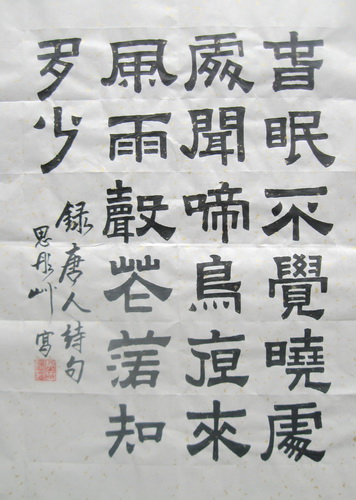 春眠不覺曉處
處聞啼鳥夜來
風雨聲花落知
多少
錄唐人詩句
思彤 寫